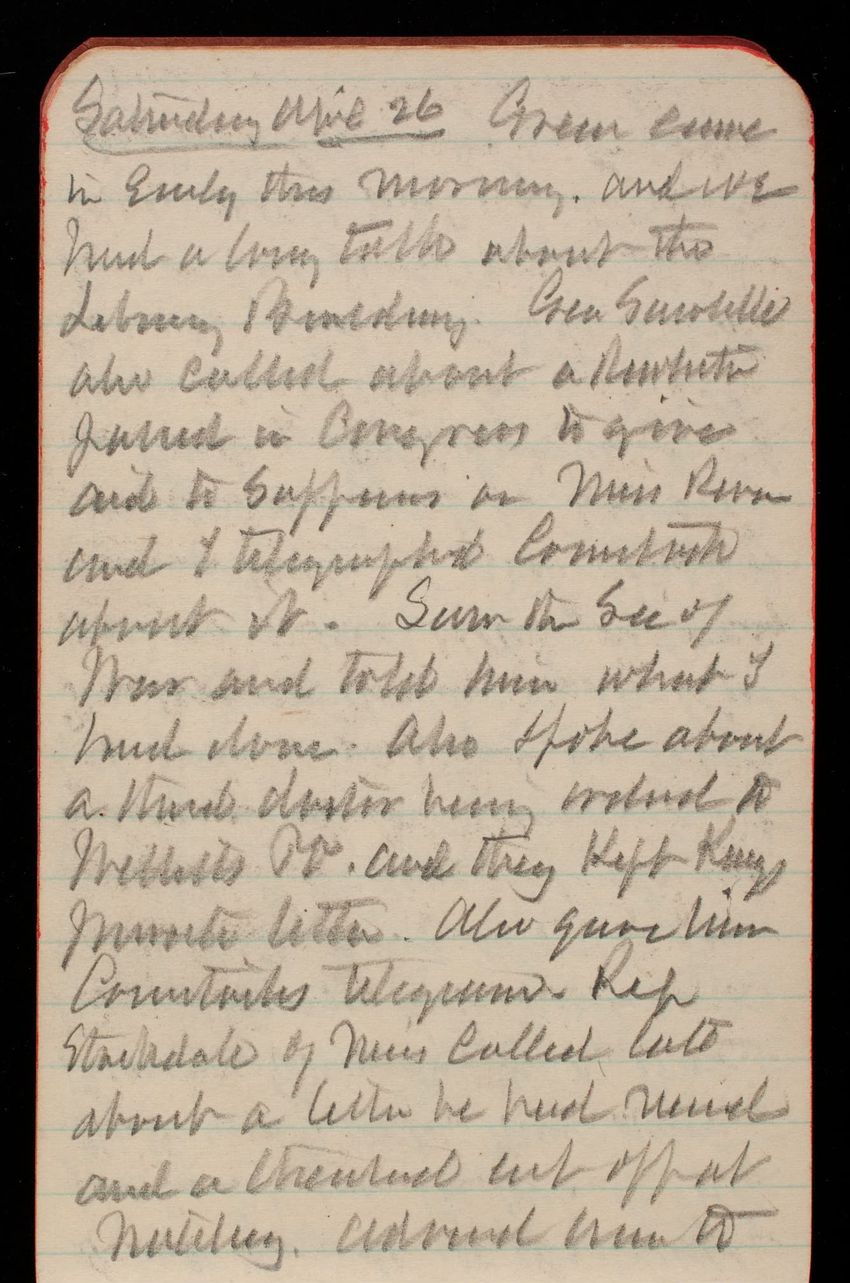 Saturday April 26 Green came
in Early this morning. and we
had a long talk about the
Library Building. Gen Sawtelle
also called about a
passed in Congress to give
aid to Sufferers on Miss River
and I telegraphed Comstock
about it. Saw the Sec of
War and told him what I
had done. Also spoke about
a third doctor being ordered to
Willets Pt. and they Kept Kings
private letter. Also gave him
Comstocks telegram. Rep
Stockdale of Miss Called late
about a letter he had
and a threatened cut off at
Natchez. Advised him to